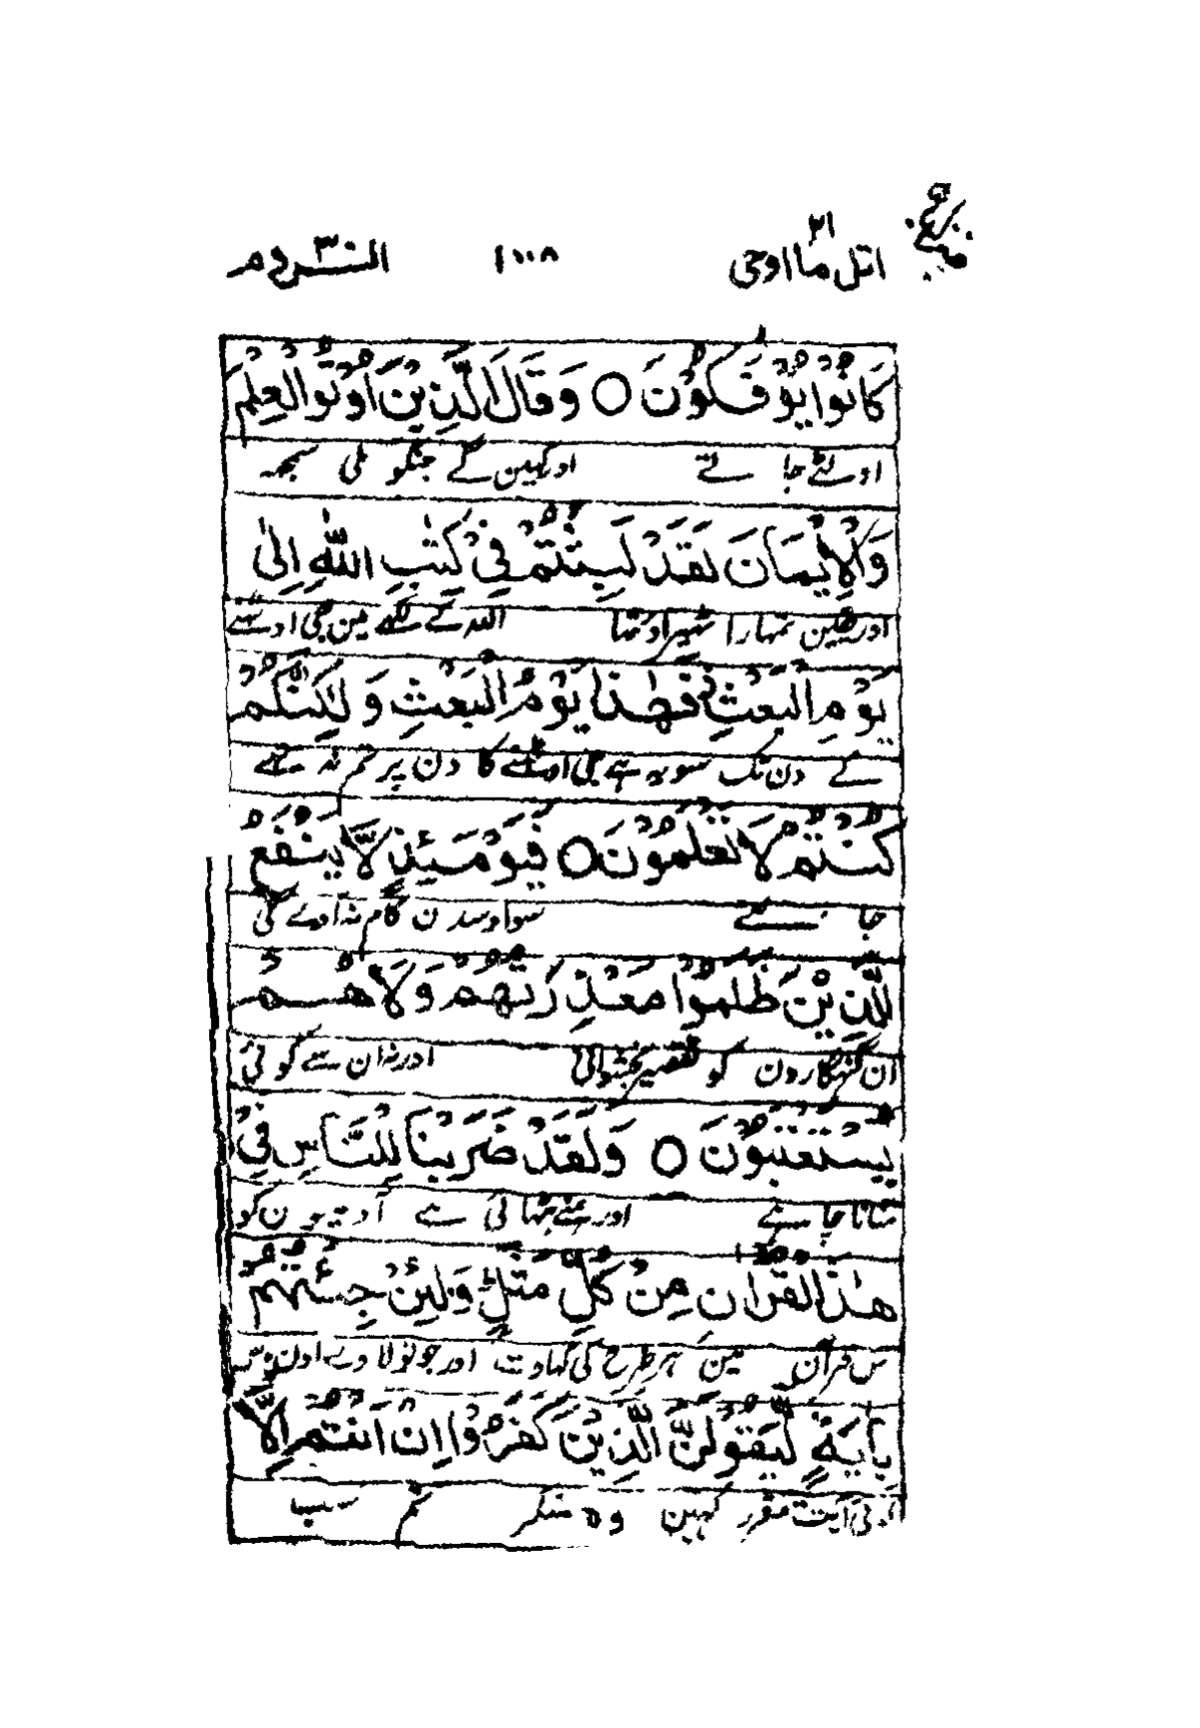 اتل ما اوحی ٢١ ١٠٠٨ الروم ٣٠
كَانُوْا يُؤْفَكُوْنَ ○ وَقَالَ الَّذِيْنَ اُوْتُوا الْعِلْمَ
اولٹے جا تے اور کہین گے جنکو ملی سمجھہ
وَالْاِيْمَانَ لَقَدْ لَبِثْتُمْ فِيْ كِتٰبِ اللّٰهِ اِلٰى
اور یقین تمہارا ٹھیراو تھا اللہ کے لکھے مین جی اوٹھنے
يَوْمِ الْبَعْثِ فَهٰذَا يَوْمُ الْبَعْثِ وَلٰكِنَّكُمْ
کے دن تک سو یہ ہے جی اوٹھنے کا دن پر تم نہ تھے
كُنْتُمْ لَا تَعْلَمُوْنَ ○ فَيَوْمَئِذٍ لَّا يَنْفَعُ
جا نتے سو اوسدن کام نہ آوے گی
الَّذِيْنَ ظَلَمُوْا مَعْذِرَتُهُمْ وَلَا هُمْ
ان گنہگارون کو تقصیر بخشوانی اور نہ ان سے کوئی
يُسْتَعْتَبُوْنَ ○ وَلَقَدْ ضَرَبْنَا لِلنَّاسِ فِيْ
منانا چاہئے اور ہمنے بٹھائی ہے آدمیون کو
هٰذَا الْقُرْاٰنِ مِنْ كُلِّ مَثَلٍ وَلَئِنْ جِئْتَهُمْ
س قرآن مین ہر طرح کی کہاوت اور جو تو لاوے اون پاس
بِاٰيَةٍ لَّيَقُوْلَنَّ الَّذِيْنَ كَفَرُوْا اِنْ اَنْتُمْ اِلَّا
کوئی آیت مقرر کہین وہ منکر تم سب